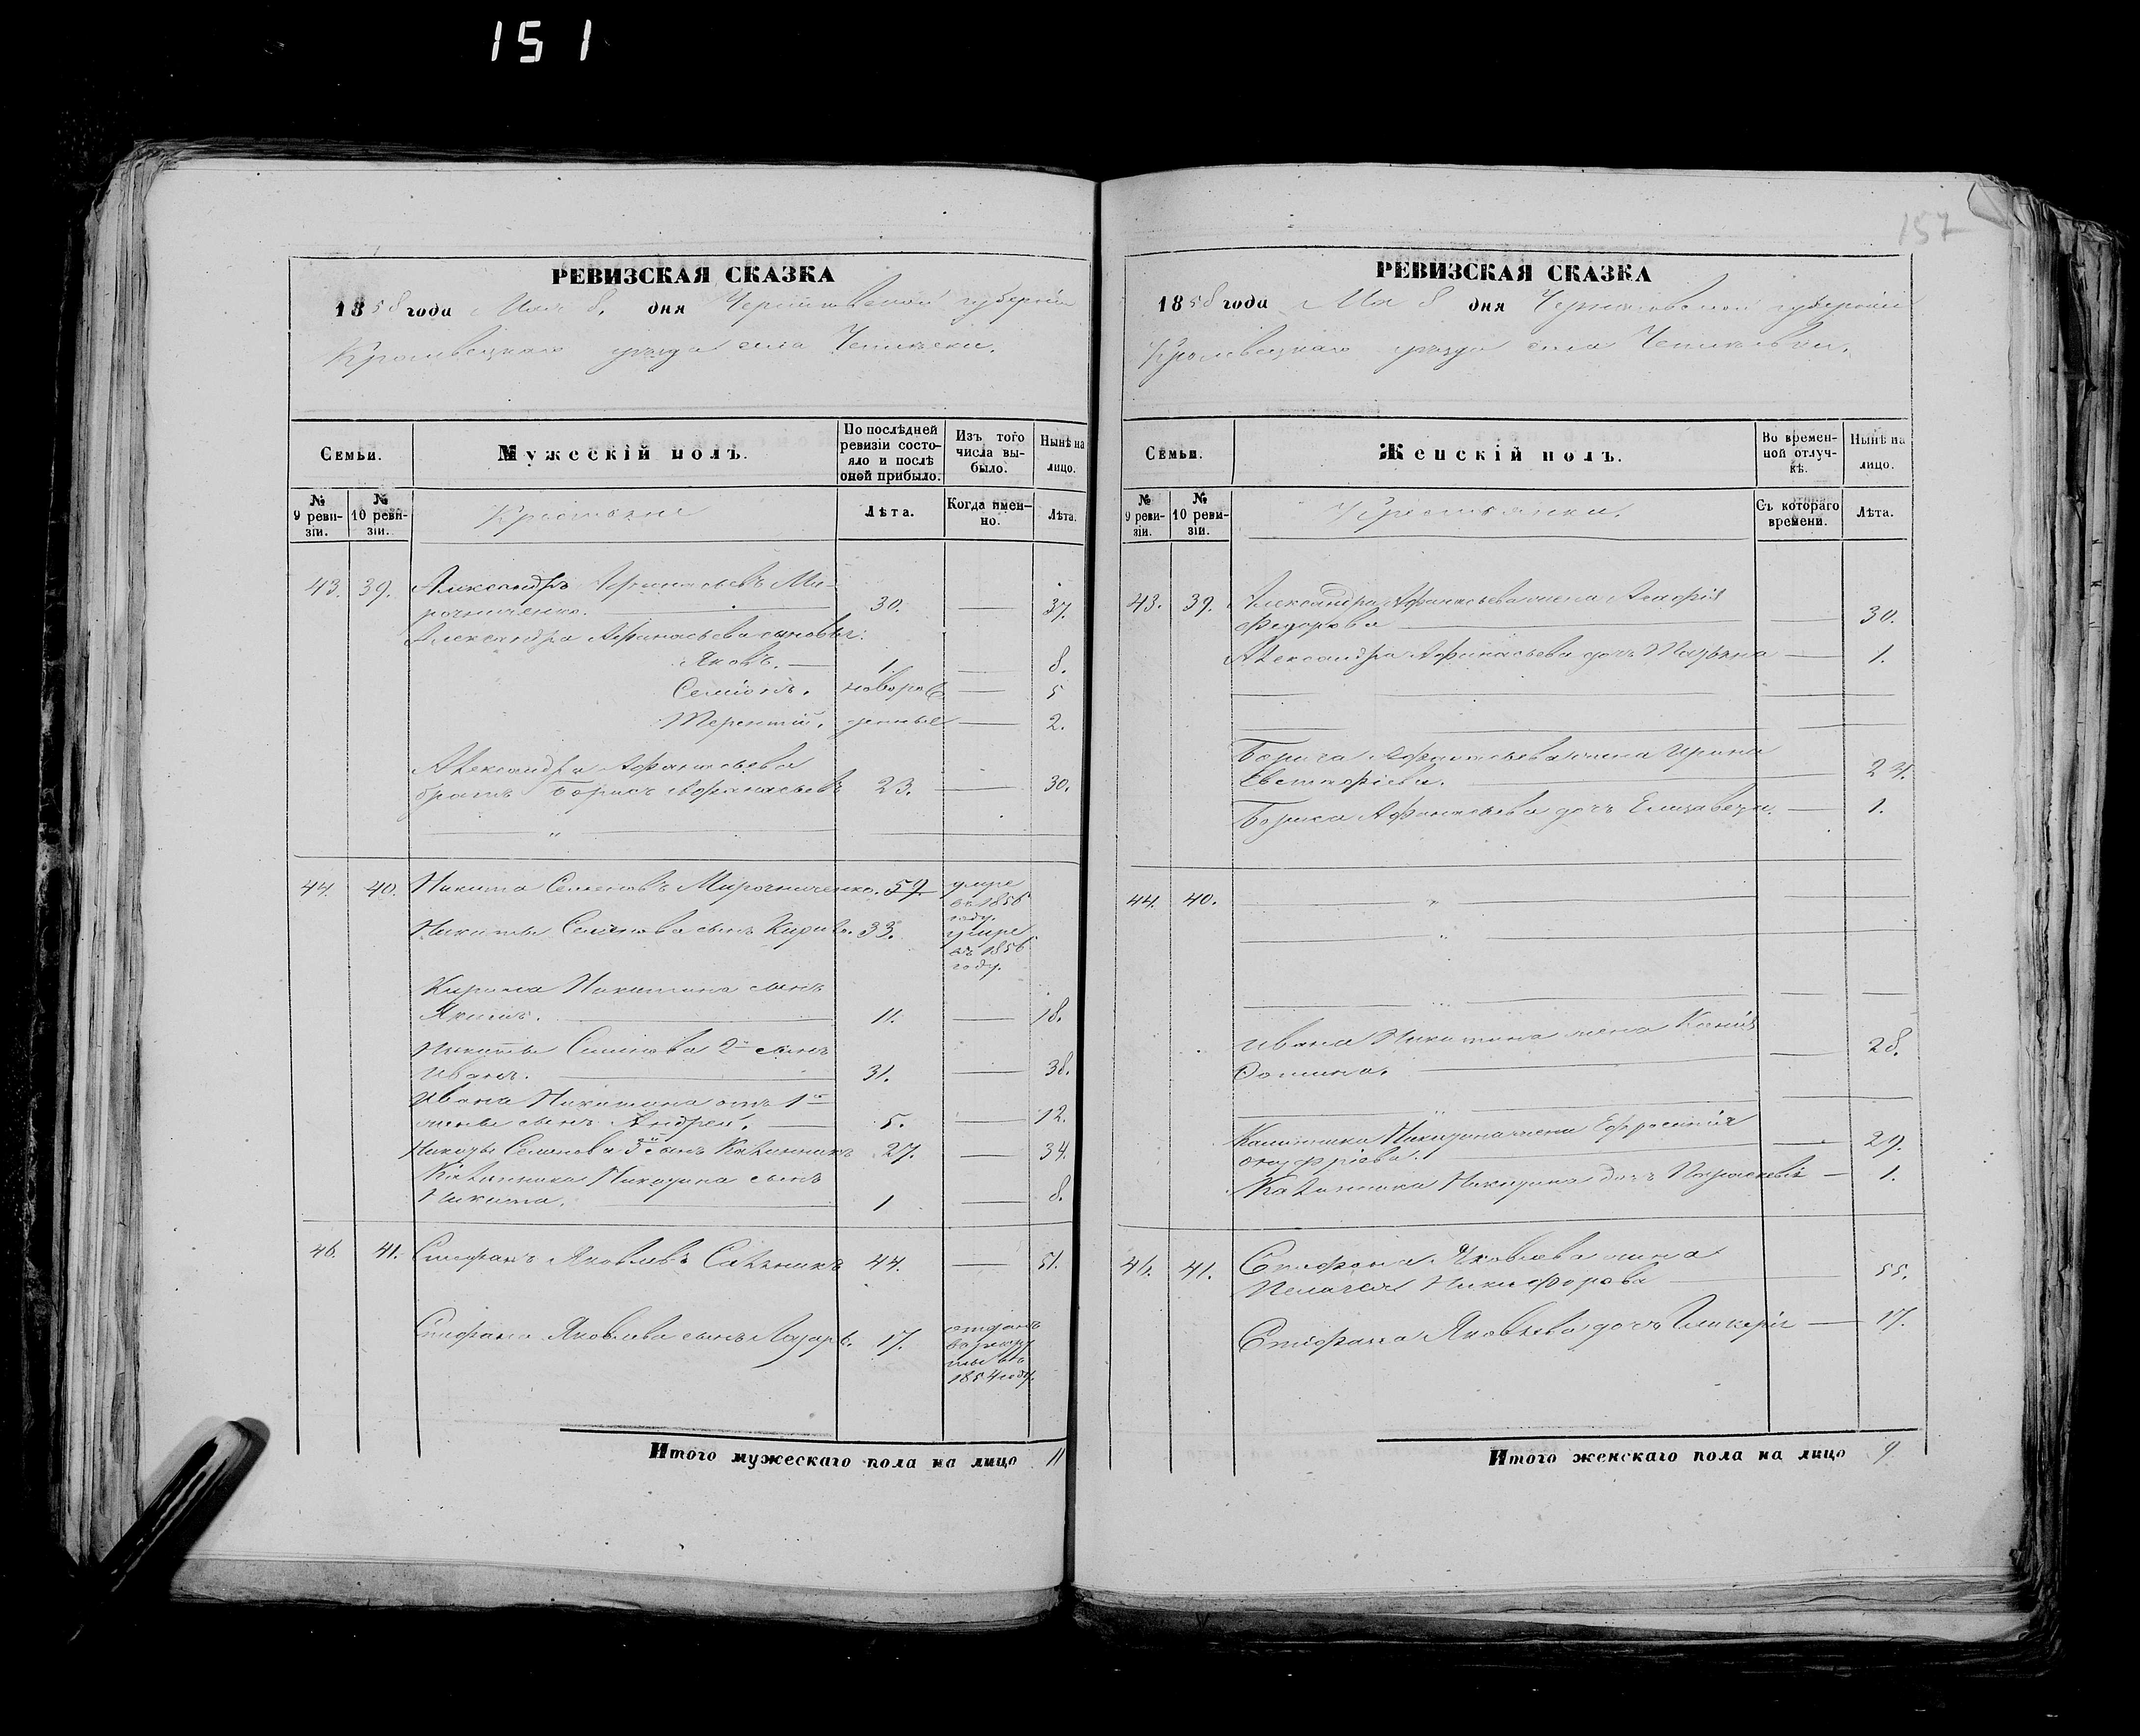 151
157
РЕВИЗСКАЯ СКАЗКА
1858 года Мая 8. дня Черниговской губернии
Кролевецкаго уезда села
Семьи.
Мужескій полъ.
По послѣдней ревизіи состояло и послѣ оной прибыло.
Изъ того числа выбыло.
Нынѣ на лицо.
№ 9 ревизіи.
№ 10 ревизіи.
Крестьяне
Лѣта.
Когда именно.
Лѣта.
43. 39. Александръ Афанасьевъ Ми-
рошниченко. 30. — 37.
Александра Афанасьева сыновья:
Яковъ. — 1. — 8.
Семіонъ. новорож — 5
Терентій. денные — 2.
Александра Афанасьева
братъ Борисъ Афанасьевъ 23. — 30.
44. 40. Никита Семеновъ Мирошниченко. 59. умре
въ 1856
году.
Никиты Семенова сынъ Кирило. 33. умре
въ 1856
году.
Кирила Никитина сынъ
Якимъ. 11. — 18.
Никиты Семенова 2й сынъ
Иванъ. 31. — 38.
Ивана Никитина отъ 1й
жены сынъ Андрей. 5. — 12.
Никиты Семенова 3й сынъ Калинникъ 27. — 34.
Калинника Никитина сынъ
Никита. 1 — 8.
46. 41. Стефанъ Яковлевъ 44. — 51.
Стефана Яковлева сынъ Лазарь. 17. отданъ
в рекру
ты въ
1854 году.
Итого мужескаго пола на лицо 11
РЕВИЗСКАЯ СКАЗКА
1858 года Мая 8 дня Черниговской губерніи
Кролевецкаго уезда села
Семьи.
Женскій полъ.
Во временной отлучкѣ.
Нынѣ на лицо.
№ 9 ревизіи.
№ 10 ревизіи.
Крестьянки.
Съ котораго времени.
Лѣта.
43. 39. Александра Афанасьева жена Агафія
Федорова — 30.
Александра Афанасьева дочь Татьяна — 1.
Бориса Афанасьева жена Ирина
Евстафіева. — 24.
Бориса Афанасьева дочь Елизавета. — 1.
44. 40.
Ивана Никитина жена Ксенія
Фомина. — 28.
Калинника Никитина жена Ефросинія
Онуфріева. — 29.
Калинника Никитина дочь Параскевія — 1.
46. 41. Стефана Яковлева жена
Пелагея Никифорова — 55.
Стефана Яковлева дочь Гликерія — 17.
Итого женскаго пола на лицо 9